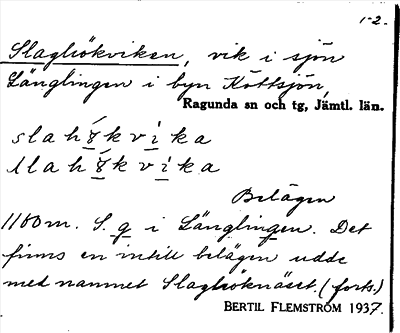 1-2.
Slaghökviken, vik i sjön
Länglingen i byn Köttsjön,
Ragunda sn och tg, Jämtl. län.
slahö́kvika
Belägen
1100 m. S. g i Länglingen. Det
finns en intill belägen udde
med namnet Slaghöknäset. (forts.)
BERTIL FLEMSTRÖM 1937.